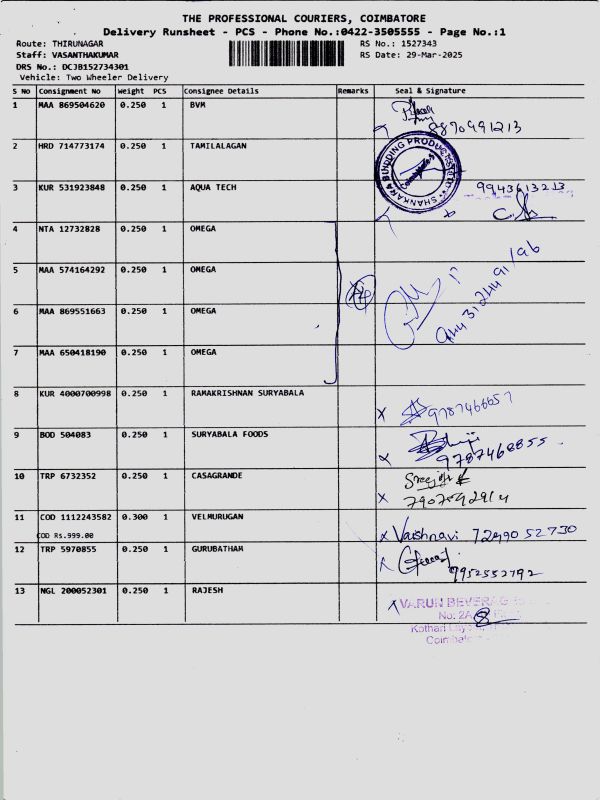 THE PROFESSIONAL COURIERS, COIMBATORE
Delivery Runsheet - PCS - Phone No.:0422-3505555 - Page No.:1
Route: THIRUNAGAR
RS No.: 1527343
Staff: VASANTHAKUMAR
RS Date: 29-Mar-2025
DRS No.: DCJB152734301
Vehicle: Two Wheeler Delivery
S No Consignment No Weight PCS Consignee Details Remarks Seal & Signature
1 MAA 869504620 0.250 1 BVM
8870491213
2 HRD 714773174 0.250 1 TAMILALAGAN
SHANKARA BUILDING PRODUCTS
3 KUR 531923848 0.250 1 AQUA TECH 9943613213
4 NTA 12732828 0.250 1 OMEGA
5 MAA 574164292 0.250 1 OMEGA
6 MAA 869551663 0.250 1 OMEGA
7 MAA 650418190 0.250 1 OMEGA
8 KUR 4000700998 0.250 1 RAMAKRISHNAN SURYABALA
9 BOD 504083 0.250 1 SURYABALA FOODS
9787468855
10 TRP 6732352 0.250 1 CASAGRANDE
11 COD 1112243582 0.300 1 VELMURUGAN
COD Rs.999.00
Vaishnavi 7299052730
12 TRP 5970855 0.250 1 GURUBATHAM
9952552792
13 NGL 200052301 0.250 1 RAJESH
VARUN BEVERAG
No: 2A
Kothari
Coimbato